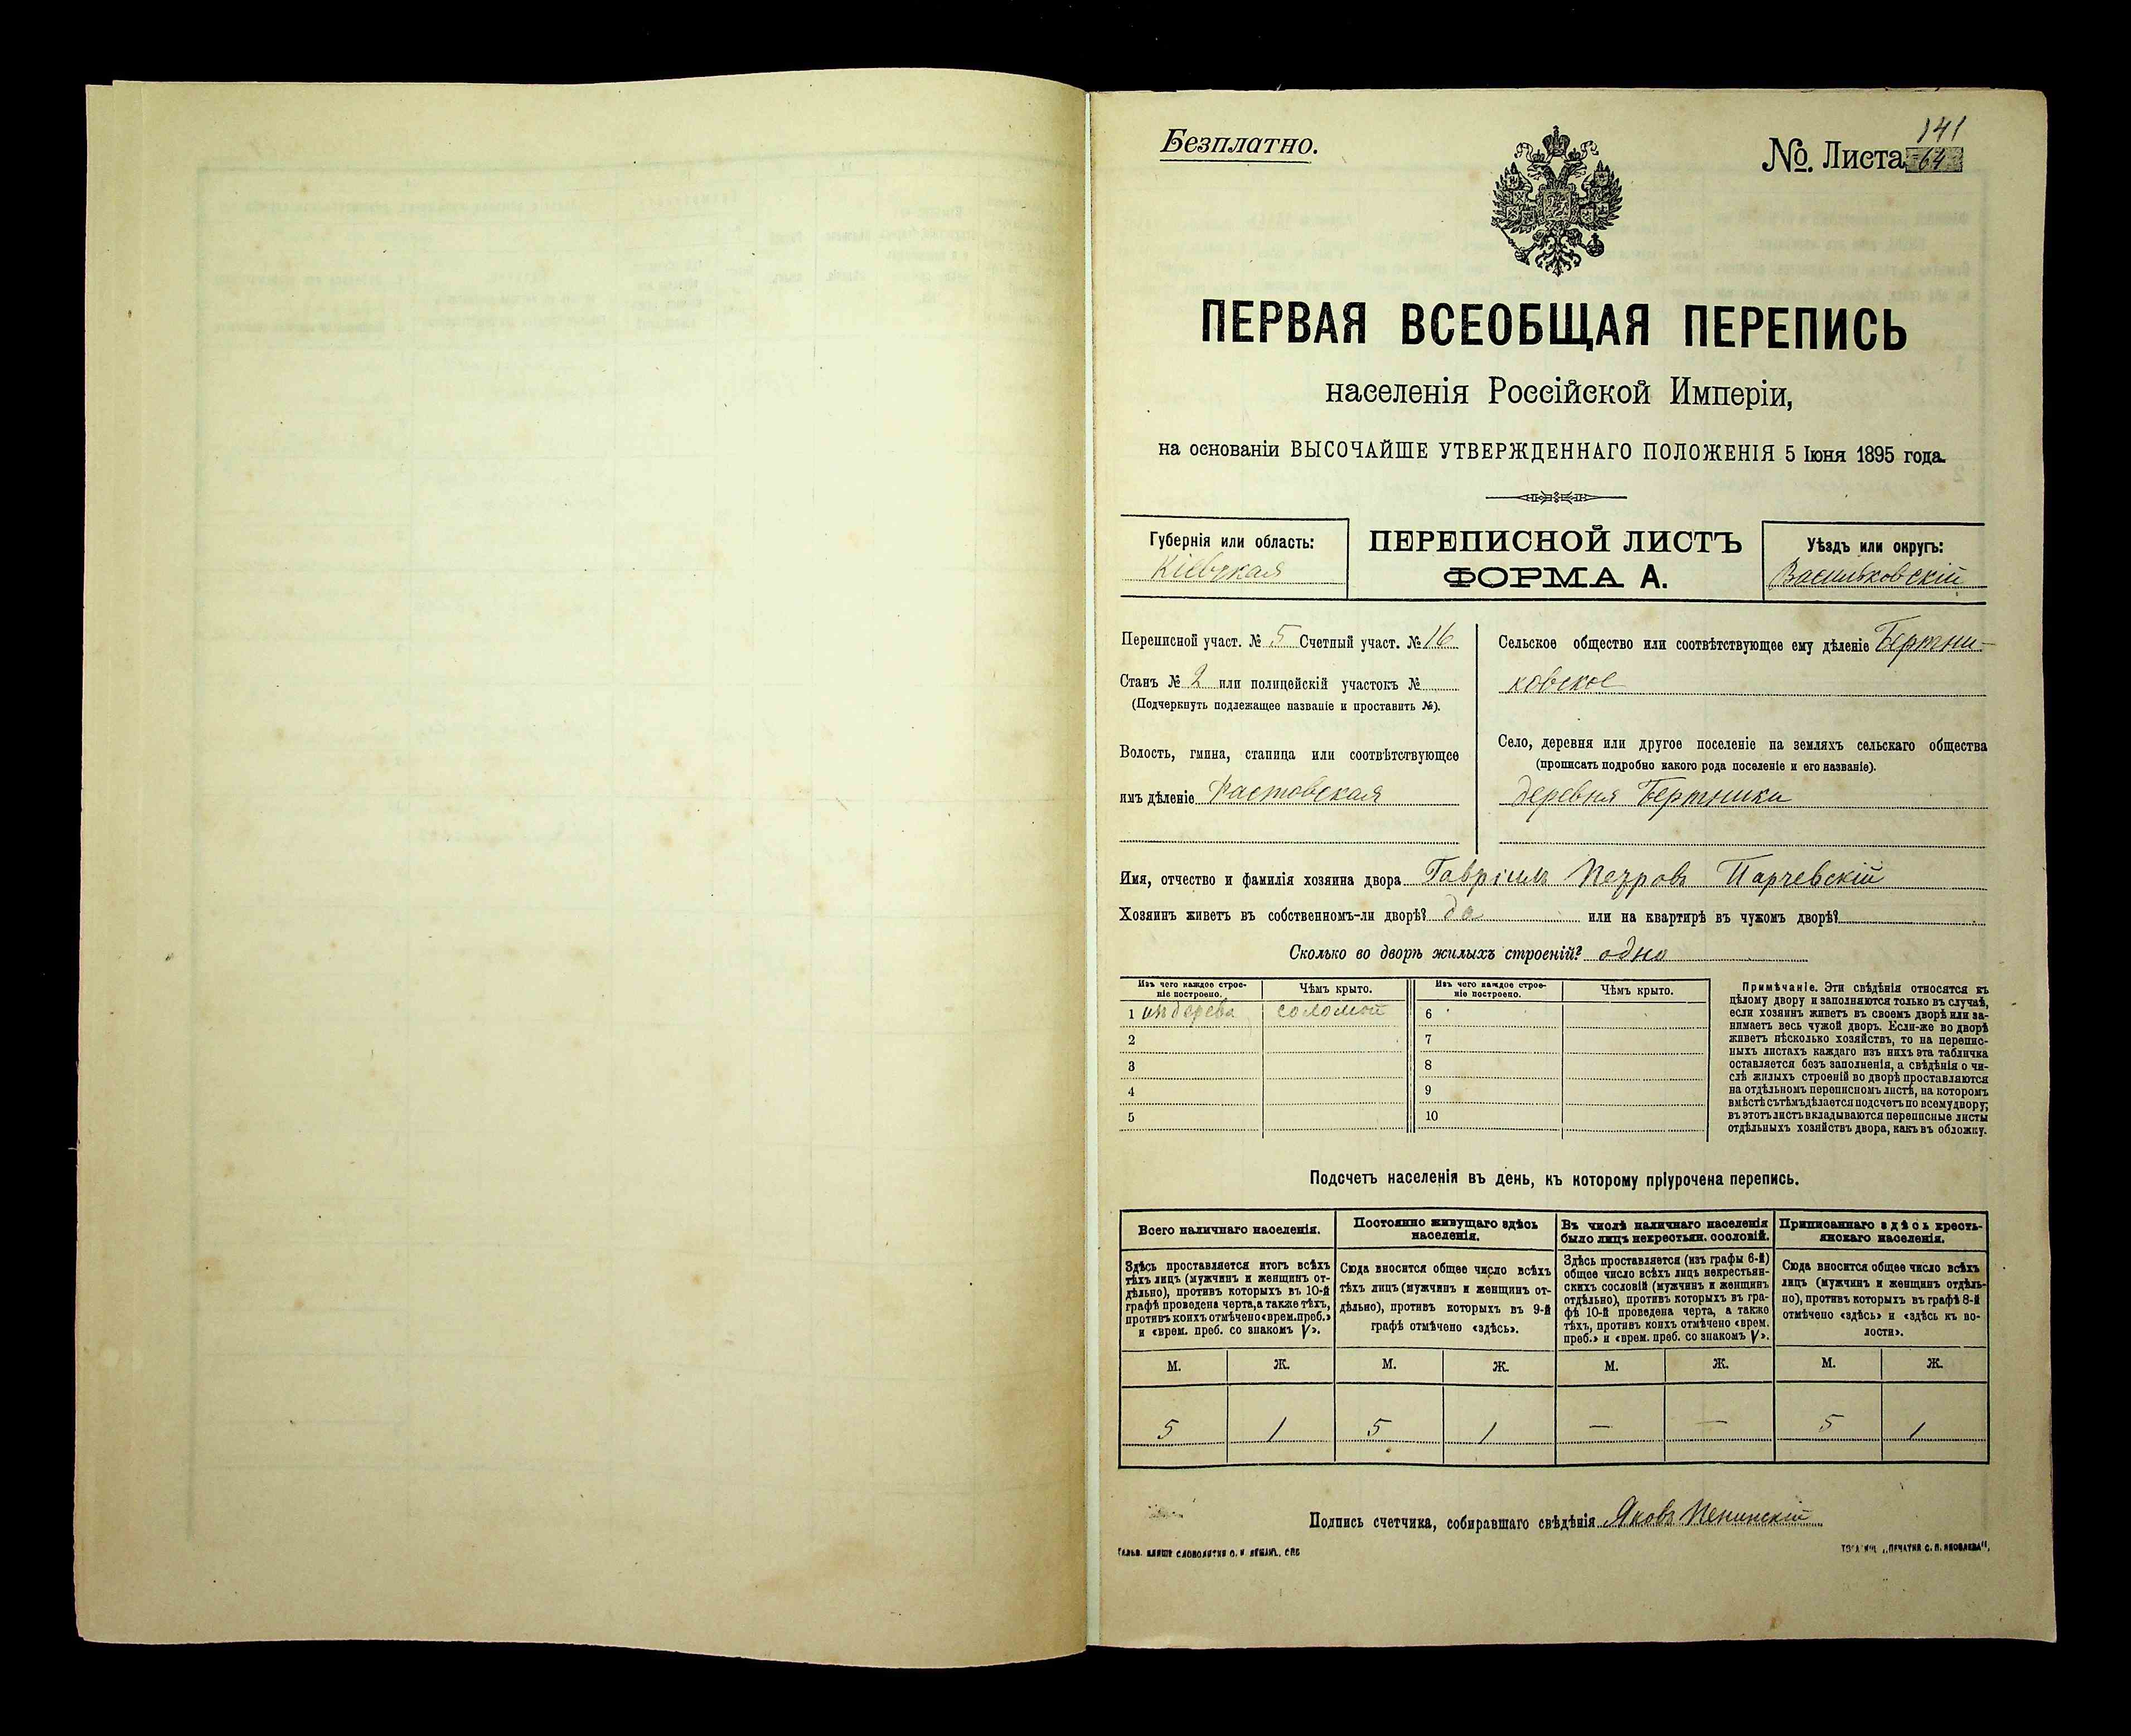 Безплатно.
141
№. Листа 64
ПЕРВАЯ ВСЕОБЩАЯ ПЕРЕПИСЬ
населенія Россійской Имперіи,
на основаніи ВЫСОЧАЙШЕ УТВЕРЖДЕННАГО ПОЛОЖЕНІЯ 5 Іюня 1895 года.
Губернія или область:
Кіевская
ПЕРЕПИСНОЙ ЛИСТЪ
ФОРМА А.
Уѣздъ или округъ:
Васильковскій
Переписной участ. № 5 Счетный участ. № 16
Станъ № 2 или полицейскій участокъ №
(Подчеркнуть подлежащее названіе и проставить №).
Волость, гмина, станица или соотвѣтствующее
имъ дѣленіе Фастовская
Сельское общество или соотвѣтствующее ему дѣленіе Бертни-
ковское
Село, деревня или другое поселеніе на земляхъ сельскаго общества
(прописать подробно какого рода поселеніе и его названіе).
деревня Бертники
Имя, отчество и фамилія хозяина двора Гавріилъ Петровъ Парчевскій
Хозяинъ живетъ въ собственномъ-ли дворѣ? да или на квартирѣ въ чужомъ дворѣ?
Сколько во дворѣ жилыхъ строеній? одно
Изъ чего каждое строе-
ніе построено.
Чѣмъ крыто.
Изъ чего каждое строе-
ніе построено.
Чѣмъ крыто.
1 изъ дерева соломой 6
2 7
3 8
4 9
5 10
Примѣчаніе. Эти свѣдѣнія относятся къ
цѣлому двору и заполняются только въ случаѣ,
если хозяинъ живетъ въ своемъ дворѣ или за-
нимаетъ весь чужой дворъ. Если-же во дворѣ
живетъ нѣсколько хозяйствъ, то на перепис-
ныхъ листахъ каждаго изъ нихъ эта табличка
оставляется безъ заполненія, а свѣдѣнія о чи-
слѣ жилыхъ строеній во дворѣ проставляются
на отдѣльномъ переписномъ листѣ, на которомъ
вмѣстѣ съ тѣмъ дѣлается подсчетъ по всему двору;
въ этотъ листъ вкладываются переписные листы
отдѣльныхъ хозяйствъ двора, какъ въ обложку.
Подсчетъ населенія въ день, къ которому пріурочена перепись.
Всего наличнаго населенія.
Здѣсь проставляется итогъ всѣхъ
тѣхъ лицъ (мужчинъ и женщинъ от-
дѣльно), противъ которыхъ въ 10-й
графѣ проведена черта, а также тѣхъ,
противъ коихъ отмѣчено «врем. преб.»
и «врем. преб. со знакомъ V».
Постоянно живущаго здѣсь
населенія.
Сюда вносится общее число всѣхъ
тѣхъ лицъ (мужчинъ и женщинъ от-
дѣльно), противъ которыхъ въ 9-й
графѣ отмѣчено «здѣсь».
Въ числѣ наличнаго населенія
было лицъ некрестьян. сословій.
Здѣсь проставляется (изъ графы 6-й)
общее число всѣхъ лицъ некрестьян-
скихъ сословій (мужчинъ и женщинъ
отдѣльно), противъ которыхъ въ гра-
фѣ 10-й проведена черта, а также
тѣхъ, противъ коихъ отмѣчено «врем.
преб.» и «врем. преб. со знакомъ V».
Приписаннаго здѣсь кресть-
янскаго населенія.
Сюда вносится общее число всѣхъ
лицъ (мужчинъ и женщинъ отдѣль-
но), противъ которыхъ въ графѣ 8-й
отмѣчено «здѣсь» и «здѣсь къ во-
лости».
М. Ж. М. Ж. М. Ж. М. Ж.
5 1 5 1 — — 5 1
Подпись счетчика, собиравшаго свѣдѣнія Яковъ